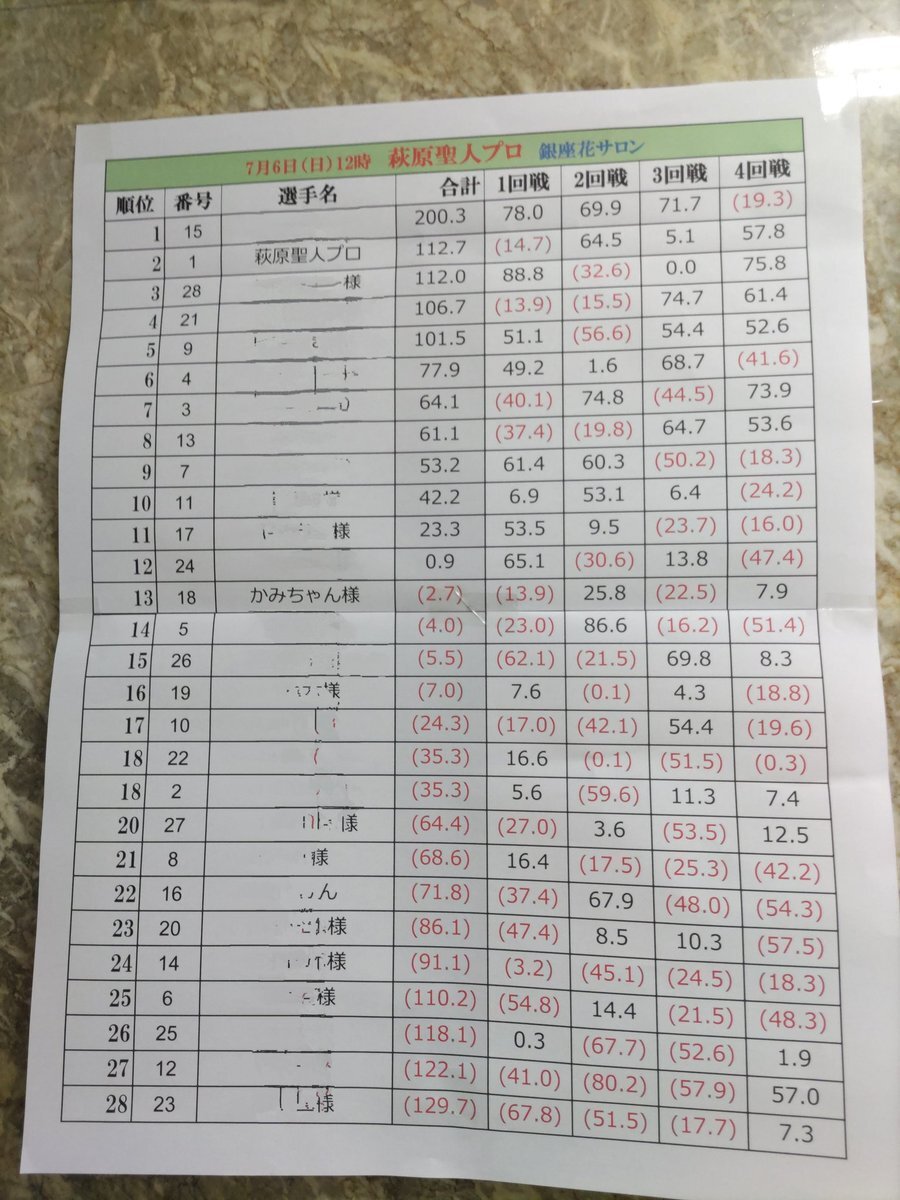 7月6日(日)12時 萩原聖人プロ 銀座花サロン
順位 番号 選手名 合計 1回戦 2回戦 3回戦 4回戦
1 15 200.3 78.0 69.9 71.7 (19.3)
2 1 萩原聖人プロ 112.7 (14.7) 64.5 5.1 57.8
3 28 様 112.0 88.8 (32.6) 0.0 75.8
4 21 106.7 (13.9) (15.5) 74.7 61.4
5 9 101.5 51.1 (56.6) 54.4 52.6
6 4 77.9 49.2 1.6 68.7 (41.6)
7 3 64.1 (40.1) 74.8 (44.5) 73.9
8 13 61.1 (37.4) (19.8) 64.7 53.6
9 7 53.2 61.4 60.3 (50.2) (18.3)
10 11 42.2 6.9 53.1 6.4 (24.2)
11 17 様 23.3 53.5 9.5 (23.7) (16.0)
12 24 0.9 65.1 (30.6) 13.8 (47.4)
13 18 かみちゃん様 (2.7) (13.9) 25.8 (22.5) 7.9
14 5 (4.0) (23.0) 86.6 (16.2) (51.4)
15 26 (5.5) (62.1) (21.5) 69.8 8.3
16 19 様 (7.0) 7.6 (0.1) 4.3 (18.8)
17 10 (24.3) (17.0) (42.1) 54.4 (19.6)
18 22 (35.3) 16.6 (0.1) (51.5) (0.3)
18 2 (35.3) 5.6 (59.6) 11.3 7.4
20 27 様 (64.4) (27.0) 3.6 (53.5) 12.5
21 8 様 (68.6) 16.4 (17.5) (25.3) (42.2)
22 16 ん (71.8) (37.4) 67.9 (48.0) (54.3)
23 20 様 (86.1) (47.4) 8.5 10.3 (57.5)
24 14 様 (91.1) (3.2) (45.1) (24.5) (18.3)
25 6 様 (110.2) (54.8) 14.4 (21.5) (48.3)
26 25 (118.1) 0.3 (67.7) (52.6) 1.9
27 12 (122.1) (41.0) (80.2) (57.9) 57.0
28 23 様 (129.7) (67.8) (51.5) (17.7) 7.3